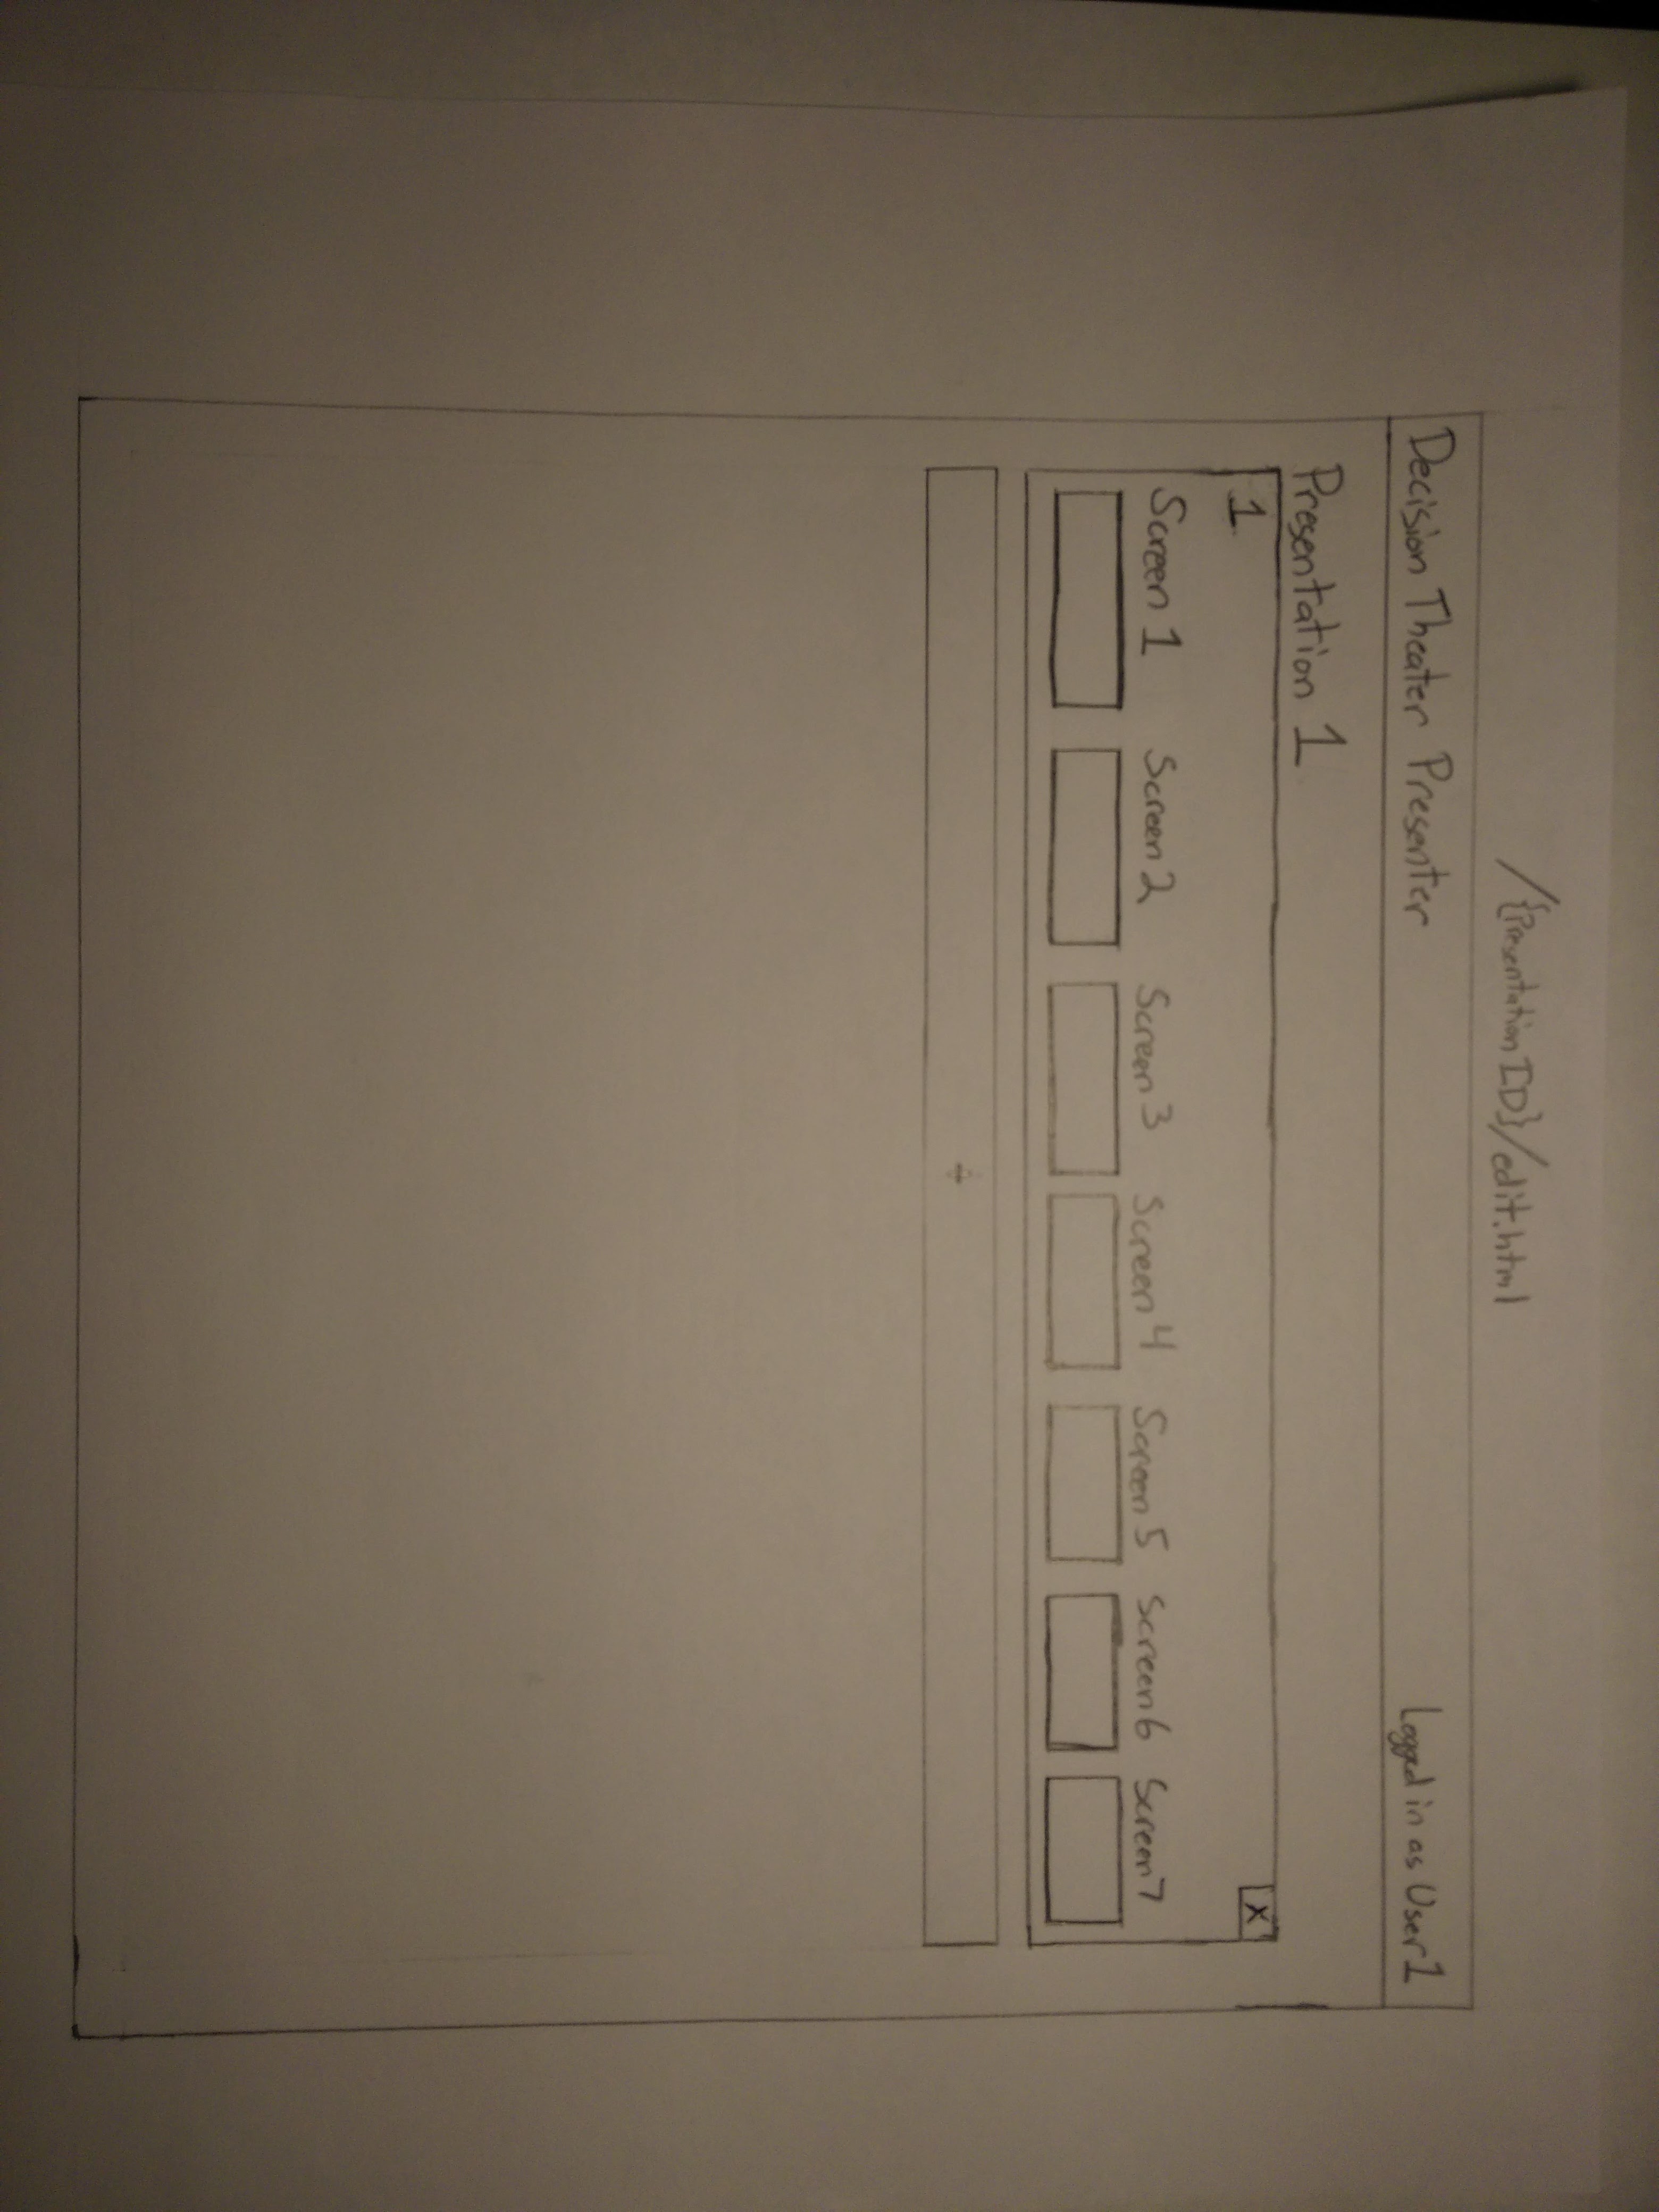 /{PresentationID}/edit.html
Decision Theater Presenter Logged in as User1
Presentation 1
1 X
Screen 1 Screen 2 Screen 3 Screen 4 Screen 5 Screen 6 Screen 7
+